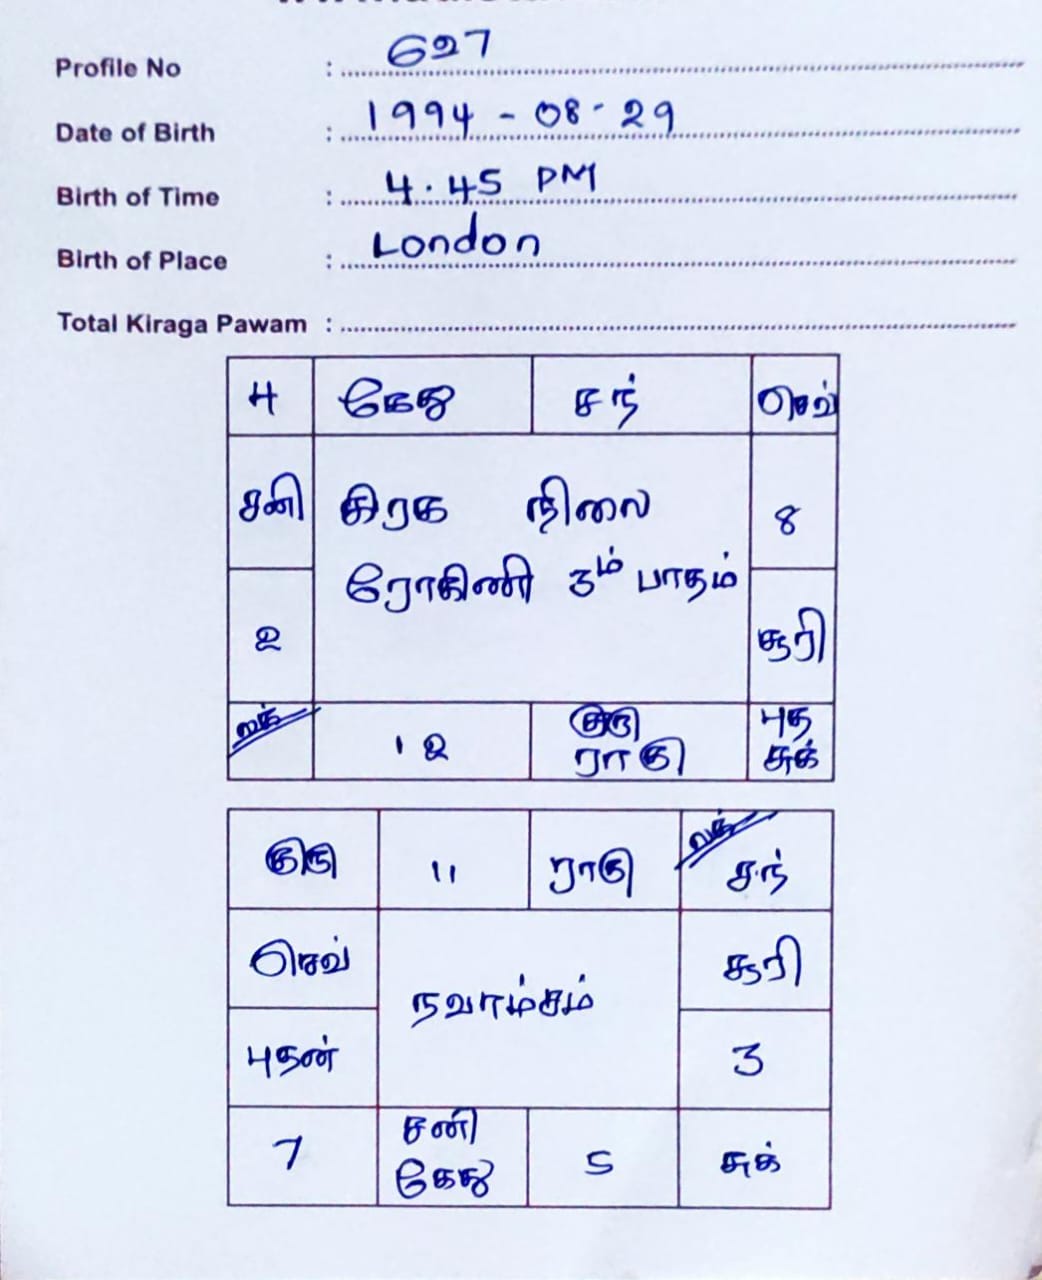 Profile No : 627
Date of Birth : 1994 - 08 - 29
Birth of Time : 4.45 PM
Birth of Place : London
Total Kiraga Pawam :
4 கேது சந் செவ்
சனி கிரக நிலை 8
ரோகிணி 3ம் பாதம்
2 சூரி
லக் 12 குரு ராகு புத சுக்
குரு 11 ராகு லக் சந்
செவ் நவாம்சம் சூரி
புதன் 3
7 சனி கேது 5 சுக்